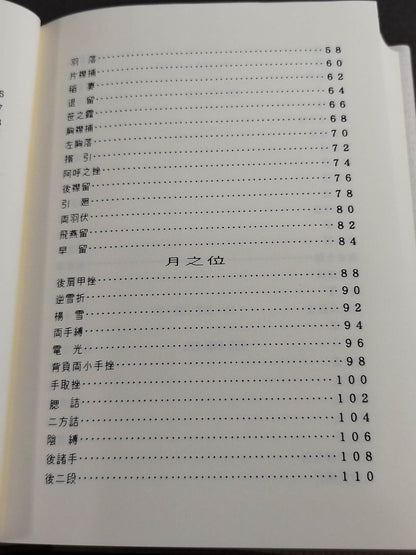 S
7
3
羽落 58
片襟捕 60
稲妻 62
退留 64
笹之露 66
胸襟捕 68
左胸落 70
擯引 72
阿呼之挫 74
後襟留 76
引廻 78
両羽伏 80
飛燕留 82
早留 84
月之位
後肩甲挫 88
逆雪折 90
楊雪 92
両手縛 94
電光 96
背負両小手挫 98
手取挫 100
腮詰 102
二方詰 104
陰縛 106
後諸手 108
後二段 110